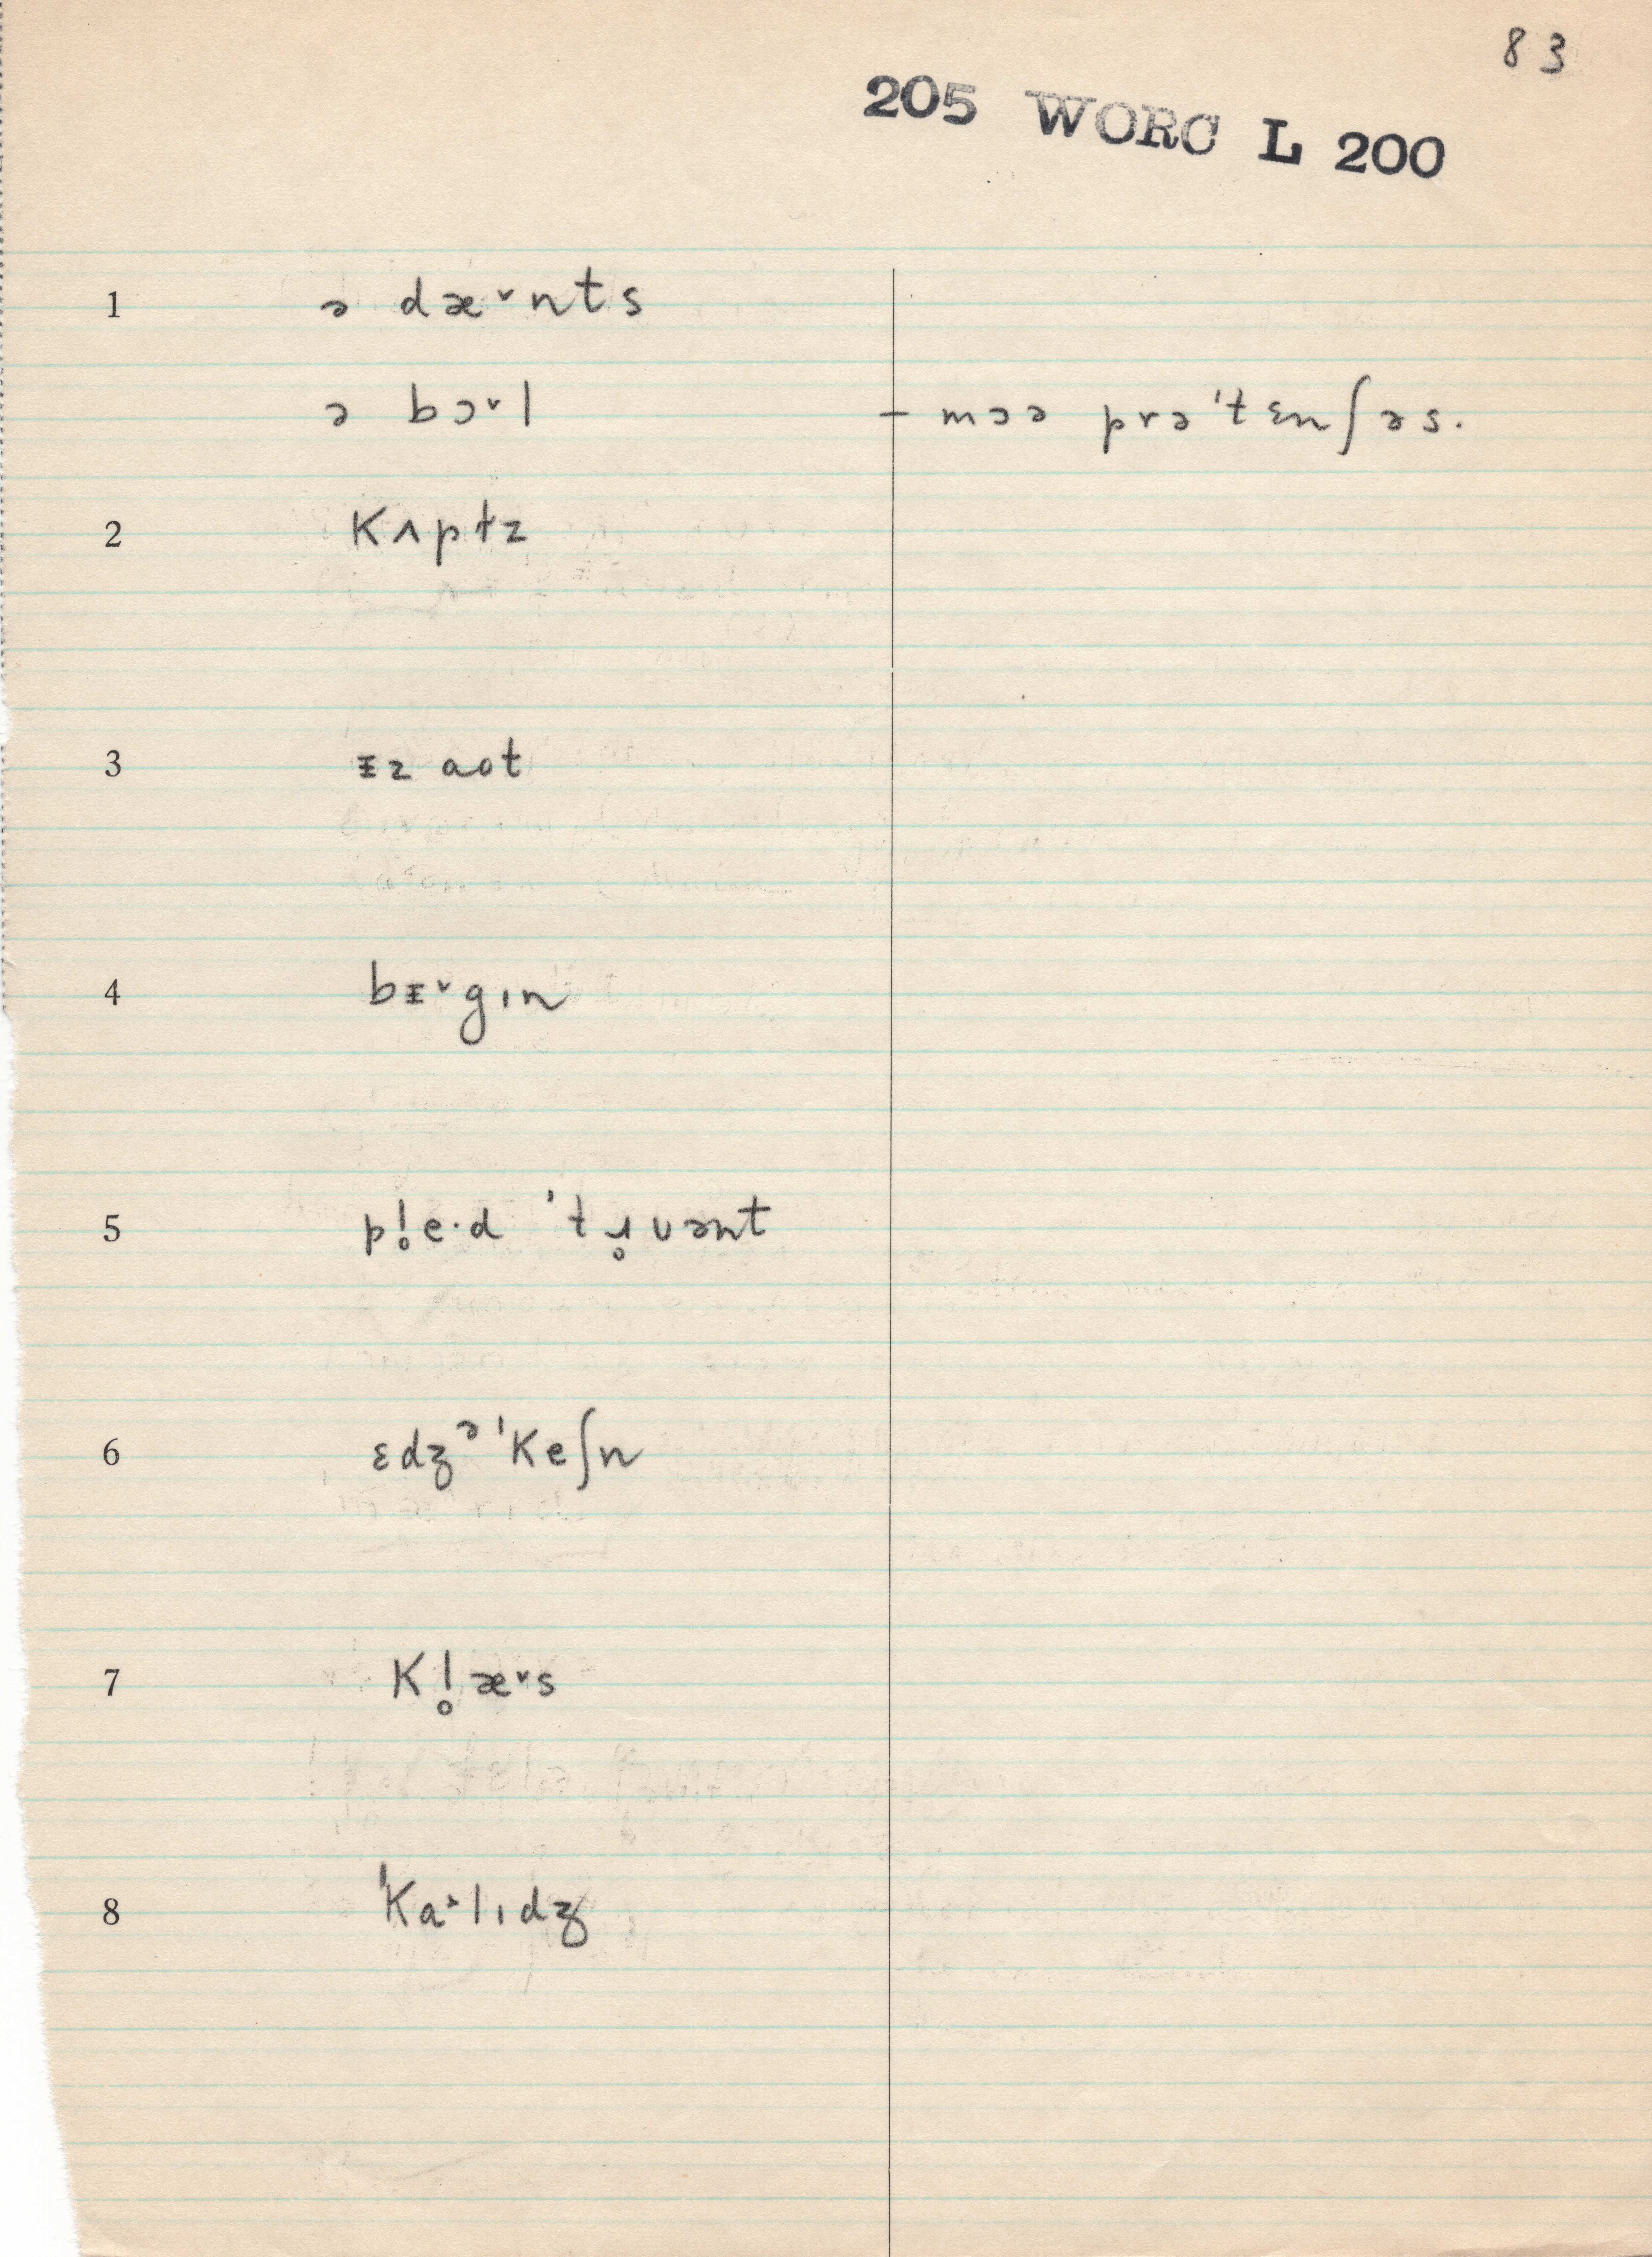 83
205 WORC L 200
1 ə dæ˅nts
ə bɔ˅l – mɔə prə'tɛnʃəs.
2 Kʌptɨz
3 ᵻz aot
4 bᵻ˅gɪn
5 pl̥e·d 'tɹ̥uənt
6 ɛdʒᵊ'Keʃn
7 Kl̥æ˅s
8 'Ka˃lɪdʒ